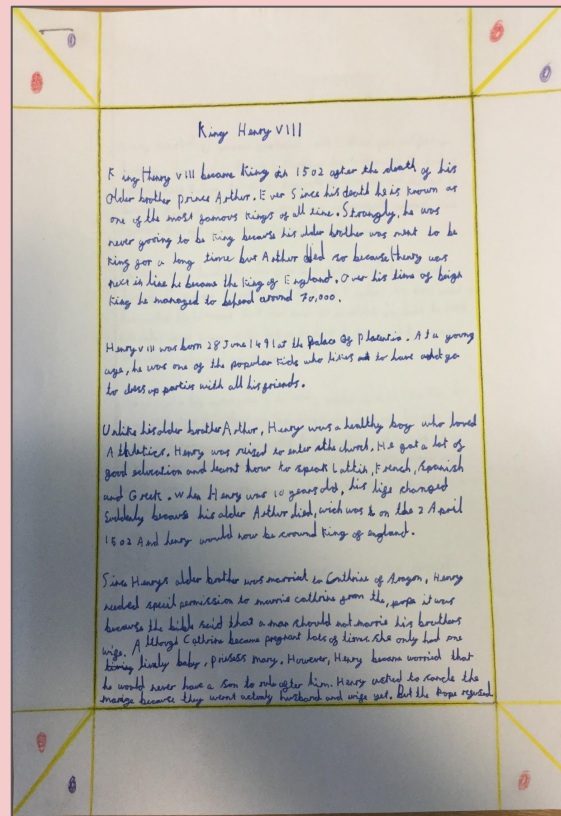 King Henry VIII
King Henry VIII became King in 1502 after the death of his
Older brother prince Arthur. Ever Since his death he is known as
one of the most famous Kings of all time. Strangly, he was
never going to be King because his older brother was ment to be
King for a long time but Arthur died so because Henry was
next in line he became the King of England. Over his time of beigh
King he managed to behead around 70,000.
Henry VIII was born 28 June 1491 at the Palace Of Placentia. At a young
age, he was one of the popular kids who likes to have and go
to dress up parties with all his friends.
Unlike his older brother Arthur, Henry was a healthy boy who loved
Athletics. Henry was raised to enter the church. He got a lot of
good education and learnt how to speak Lattin, French, Spanish
and Greek. When Henry was 10 years old, his life changed
Suddenly because his older Arthur died, wich was on the 2 April
1502 And henry would now be cround King of england.
Since Henrys older brother was marriat to Cathrie of Aragon, Henry
needed specil permission to marrie cathrine from the, pope it was
because the bible said that a man should not marrie his brothers
wife. Although Cathrine became pregnant lots of times she only had one
lively baby, prusess mary. However, Henry became worried that
he would never have a son to rule after him. Henry wated to cancle the
marige because they wernt actualy husband and wife yet. But the Pope refused